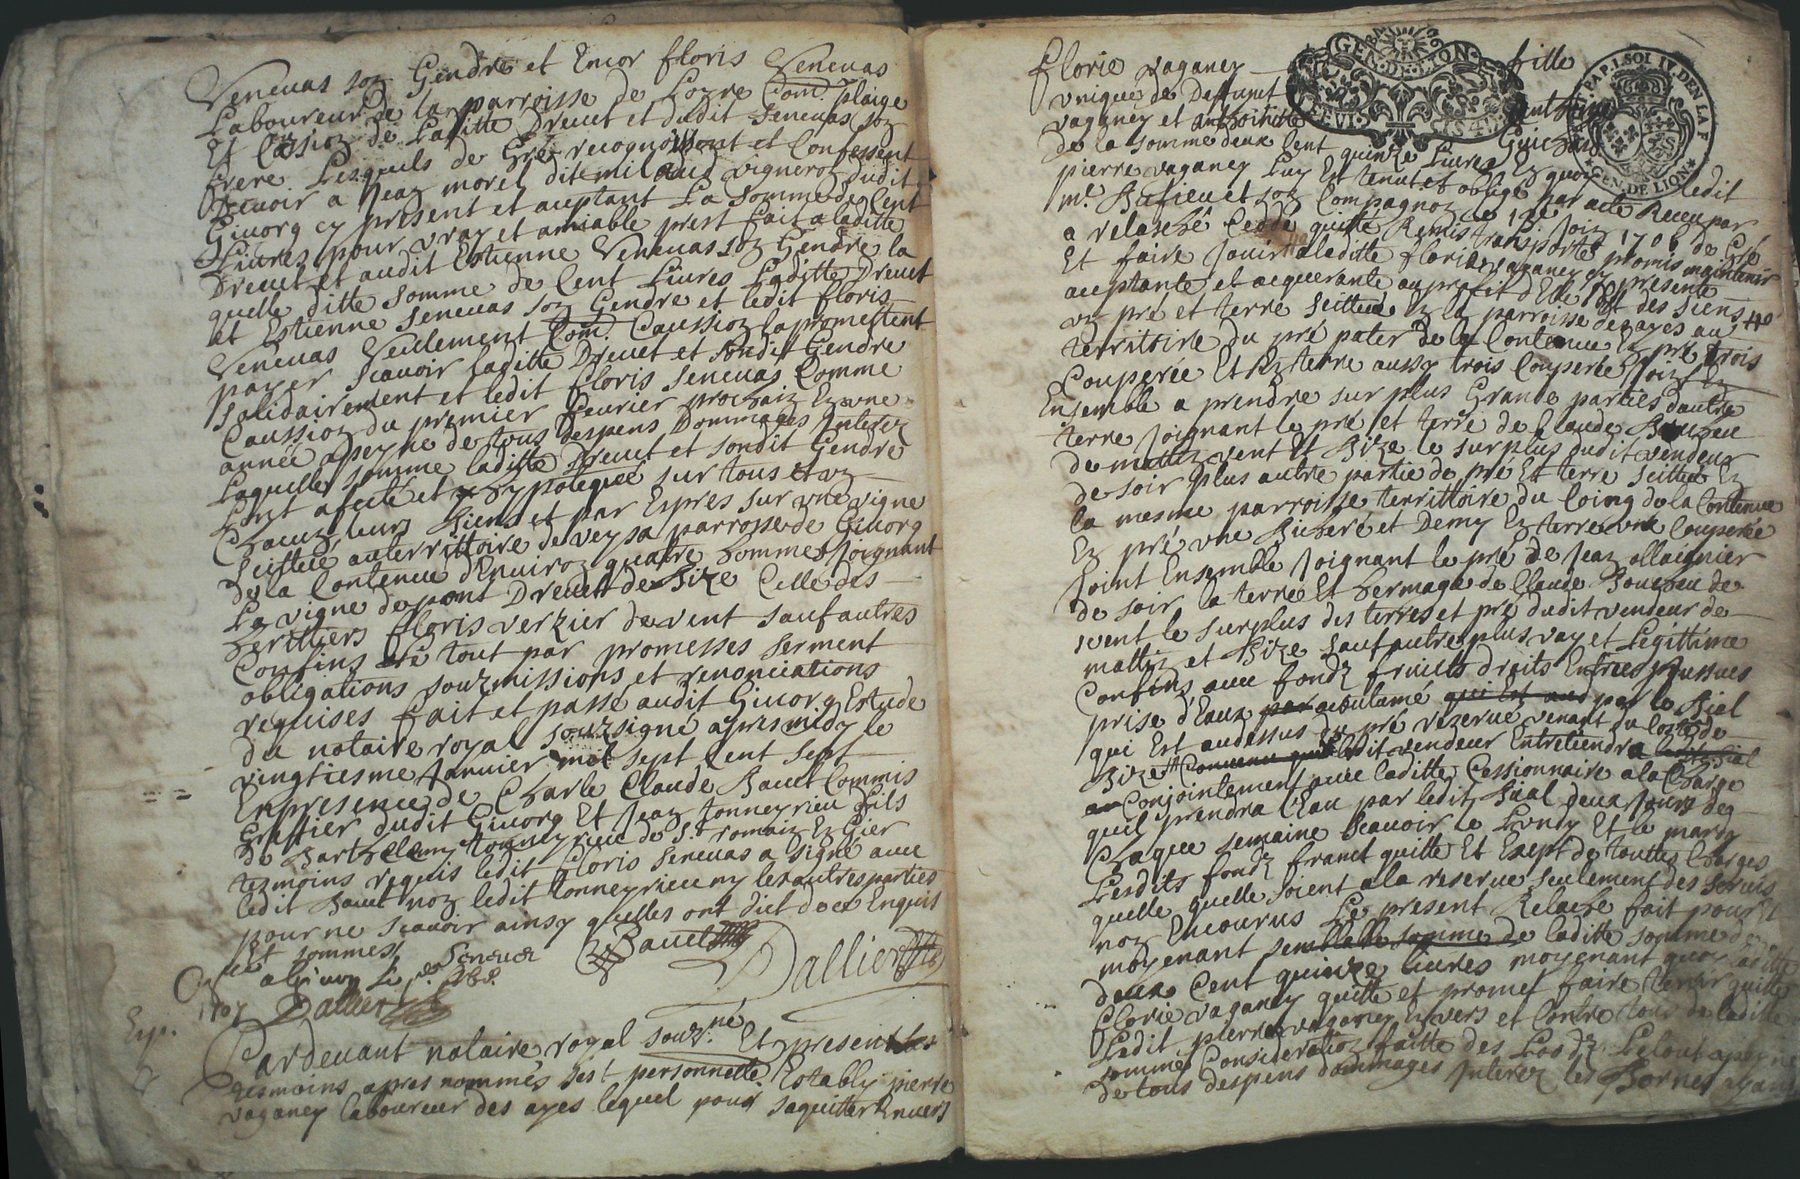 Veneuas son Gendre et Encor floris Veneuas
Laboureur de la parroisse de Loyre Com.e plaige
Et Caussion de Laditte Dreuet et dudit Seneuas son
frere Lesquels de Gré recognoissent et Confessent
deuoir a Jean morel dit vigneron dudit
Giuorg cy present et aceptant La Somme de Cent
Liures pour vray et amiable prest fait a laditte
Dreuet et audit Estienne Veneuas son Gendre la
quelle ditte somme de Cent Liures Laditte Dreuet
et Estienne Seneuas son Gendre et ledit floris
Veneuas Seulement Com.e Caussion la promettent
payer Scauoir laditte Dreuet et sondit Gendre
solidairement et ledit floris Seneuas Comme
Caussion du premier feurier prochain En une
année a peyne de tous despens Dommages Interez
Laquelle somme laditte Dreuet et sondit Gendre
sont afecté et hypotequée sur tous et un
Chacun leurs Biens et par Expres sur une vigne
scittuée au territtoire de veysa parroisse de Giuorg
de la Contenue d'Enuiron quatre hommes Joignant
La vigne de pont Dreuet de Bize Celle des
herittiers floris verzier de vent sauf autres
Confins Le tout par promesses serment
obligations soubzmissions et renonciations
requises fait et passé audit Giuorg Estude
du notaire royal soubzsigné apres midy le
vingtiesme Januier mil sept Cent Sept
En presence de Charle Claude Bauet Commis
Greffier dudit Giuorg Et Jean tonneyrieu fils
de Barthelemy tonneyrieu de St romain En Gier
tesmoins requis ledit floris Seneuas a signé auec
ledit Bauet non ledit tonneyrieu ny les autres parties
pour ne Scauoir ainsy quelles ont dict de ce Enquis
Et sommés
Seneuas
Bauet
Dallier
a Giuor Le
1707
Dallier
Exp.
Pardeuant notaire royal souz.né Et presents les
tesmoins apres nommés s'est personnelle. Estably pierre
vaganey laboureur des ayes lequel pour saquitter Enuers
florie vaganey fille
unique de Deffunct
vaganey et anthoinette Guichard
de la somme deux Cent quinze Liures En quoy ledit
pierre vaganey Luy Est tenut et obligé par acte Receu par
m.e Bafieu et son Compagnon le 12e Join 1706 de Gré
a relasché Cedde quitté Remis transporté promis maintenir
Et faire Jouir a laditte florie vaganey cy presente
aceptante et acquerante au profit d'Elle Et des siens
un pré et terre scittué En la parroisse des ayes au
territoire du pré pater de la Contenue En pré trois
Couperée Et En terre aussy trois Couperée
Ensemble a prendre sur plus Grande parties d'autre
terre Joignant le pré et terre de Claude Boucheu
de mattin vent Et Bize le surplus dudit vendeur
de soir plus autre partie de pré Et terre scittué En
la mesme parroisse territtoire du Coing de la Contenue
En pré une Bichere et Demy En terre une Couperée
Joint Ensemble Joignant le pré de Jean Maignier
de soir la terre Et hermage de Claude Boucheu de
vent le surplus des terres et pré dudit vendeur de
mattin et Bize sauf autre plus vray et Légittime
Confins auec fondz fruicts droits Entrées Issues
prise d'Eaux acoutumé par le Bial
qui Est audessus du pré rezerué venant du Costé de
Bize ledit vendeur Entretiendra ledit Bial
Conjointement auec laditte Cessionnaire a la Charge
quil prendra l'Eau par ledit Bial deux Jours de
Chaque semaine Scauoir le Lundy Et le mardy
Lesdits fondz franct quitte Et Exept de touttes Charges
quelle quelle soient a la reserue seulement des seruis
non Encourus Le present Relasche fait pour Et
moyenant semblable somme de laditte somme de
deux Cent quinze liures moyenant quoy laditte
florie vaganey quitte et promet faire tenir quitte
Ledit pierre vaganey Enuers et Contre tous de laditte
somme Consideration faitte des Lodz Le tout a peyne
de tous despens dommages Interez les Bornes ayant
GEN·DE·LION
PAP.I.SOL IV.DEN LA F
GEN.DE LION